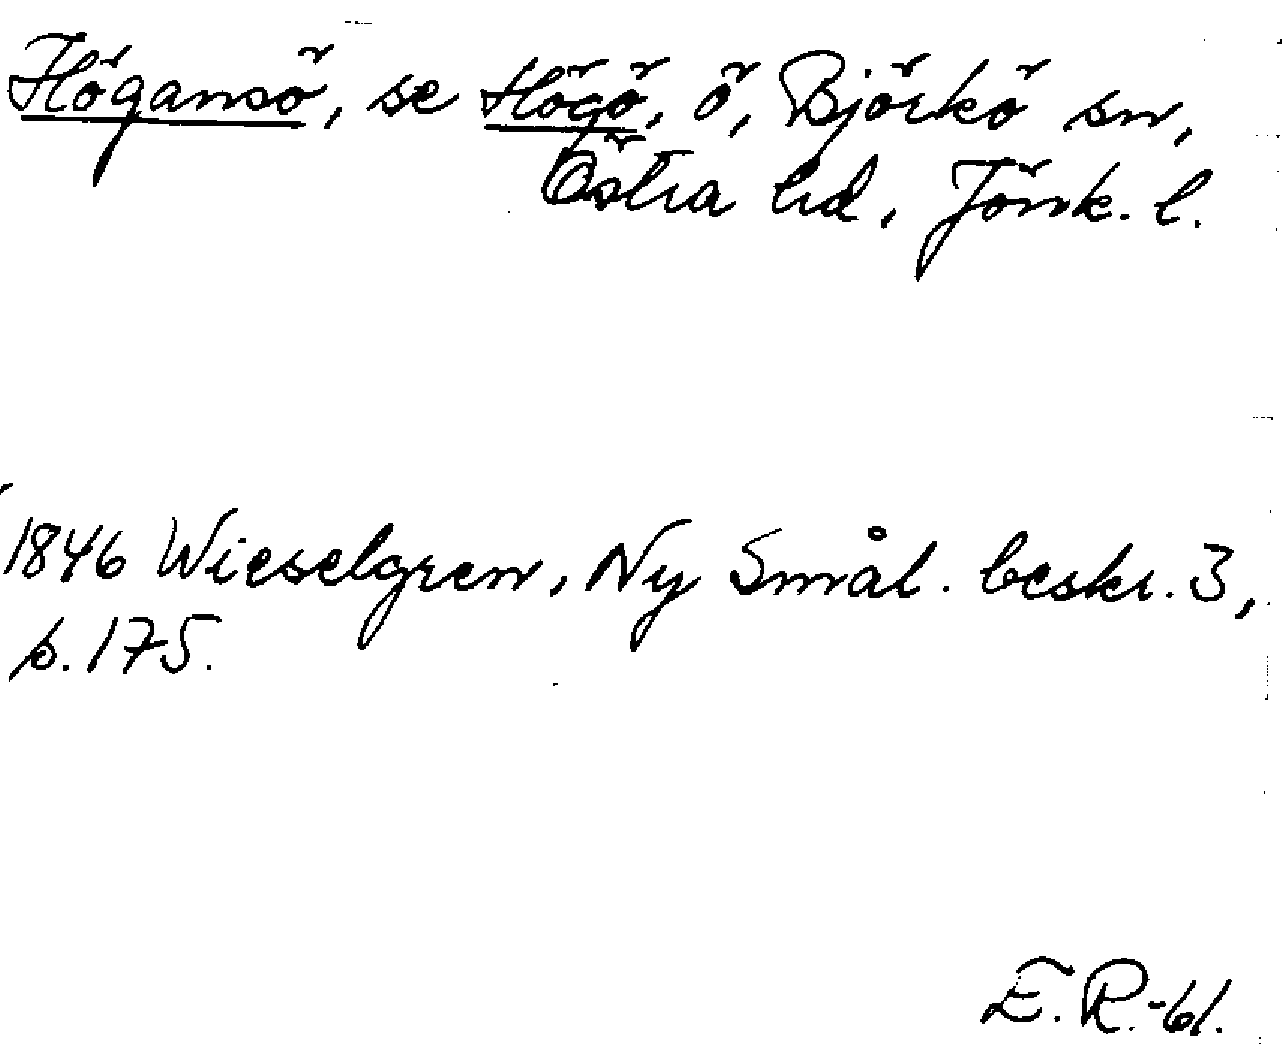 Högansö, se Högö, ö, Björkö sn,
Östra hd, Jönk. l.
1846 Wieselgren, Ny Smål. beskr. 3,
s. 175.
E.R.-61.